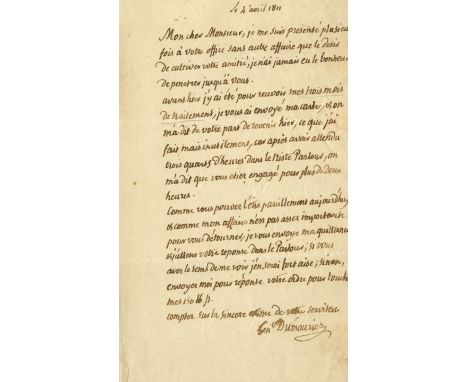 le 4 avril 1811
Mon cher Monsieur, je me suis presenté plusieurs
fois à votre office sans autre affaire que le desir
de cultiver votre amitié; je n'ai jamais eu le bonheur
de penetrer jusqu'à vous.
avant hier j'y ai été pour recevoir mes trois mois
de traitement, je vous ai envoyé ma carte, et on
m'a dit de votre part de revenir hier, ce que j'ai
fait mais inutilement, car après avoir attendu
trois quarts d'heures dans le triste Parlour, on
m'a dit que vous etiez engagé pour plus de deux
heures.
Comme vous pouvez l'être pareillement aujourd'huy,
et comme mon affaire n'est pas assez importante
pour vous détourner, je vous envoye ma quittance
et j'attens votre reponse dans le Parlour; si vous
avez le tems de me voir j'en serai fort aise; sinon,
envoyez moi pour réponse votre ordre pour toucher
mes
compter sur la sincere de votre serviteur
Gen Dumouriez